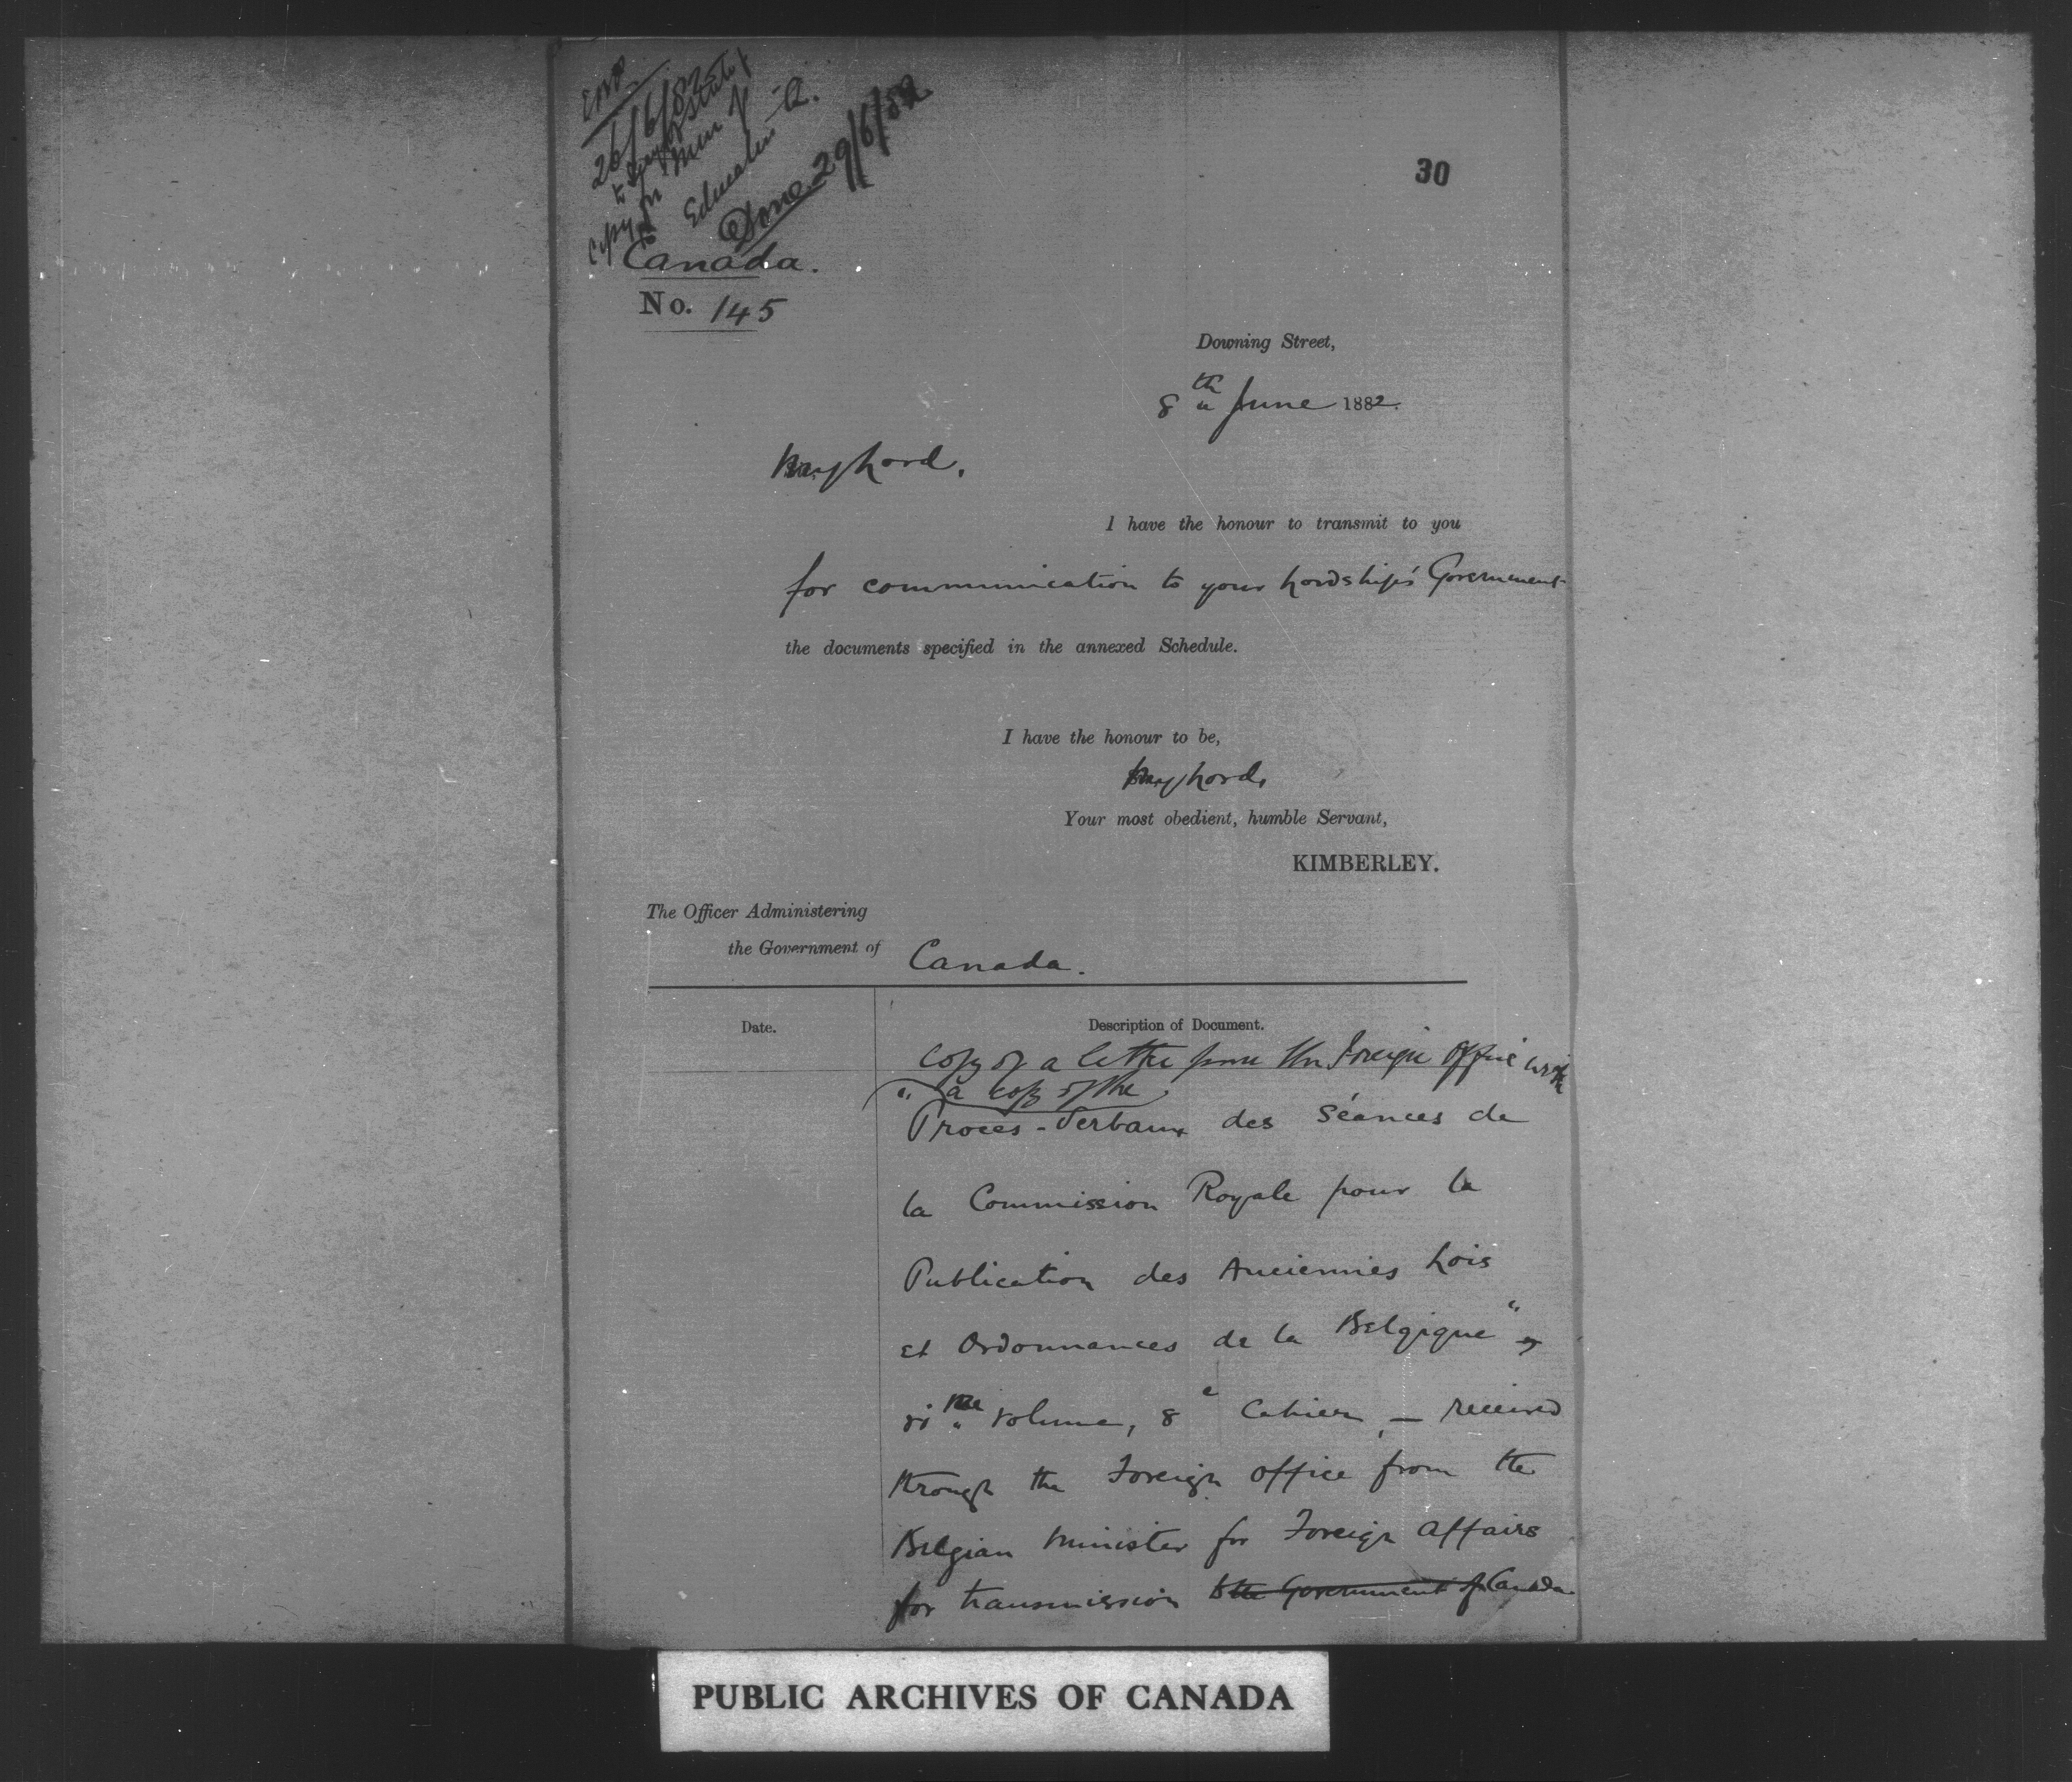 26/6/82
Copy to Secy of State
for Min of
Education Q.
Done 29/6/82
30
Canada.
No. 145
Downing Street,
8th June 1882.
My Lord,
I have the honour to transmit to you
for communication to your Lordship's Government
the documents specified in the annexed Schedule.
I have the honour to be,
My Lord,
Your most obedient, humble Servant,
KIMBERLEY.
The Officer Administering
the Government of Canada.
Date. Description of Document.
Copy of a letter from the Foreign Office with
" a copy of the
Proces-Verbaux des Séances de
la Commission Royale pour la
Publication des Anciennes Lois
et Ordonnances de la Belgique"
vi me volume, 8e Cahier, — received
through the Foreign Office from the
Belgian Minister for Foreign Affairs
for transmission to the Government of Canada
PUBLIC ARCHIVES OF CANADA